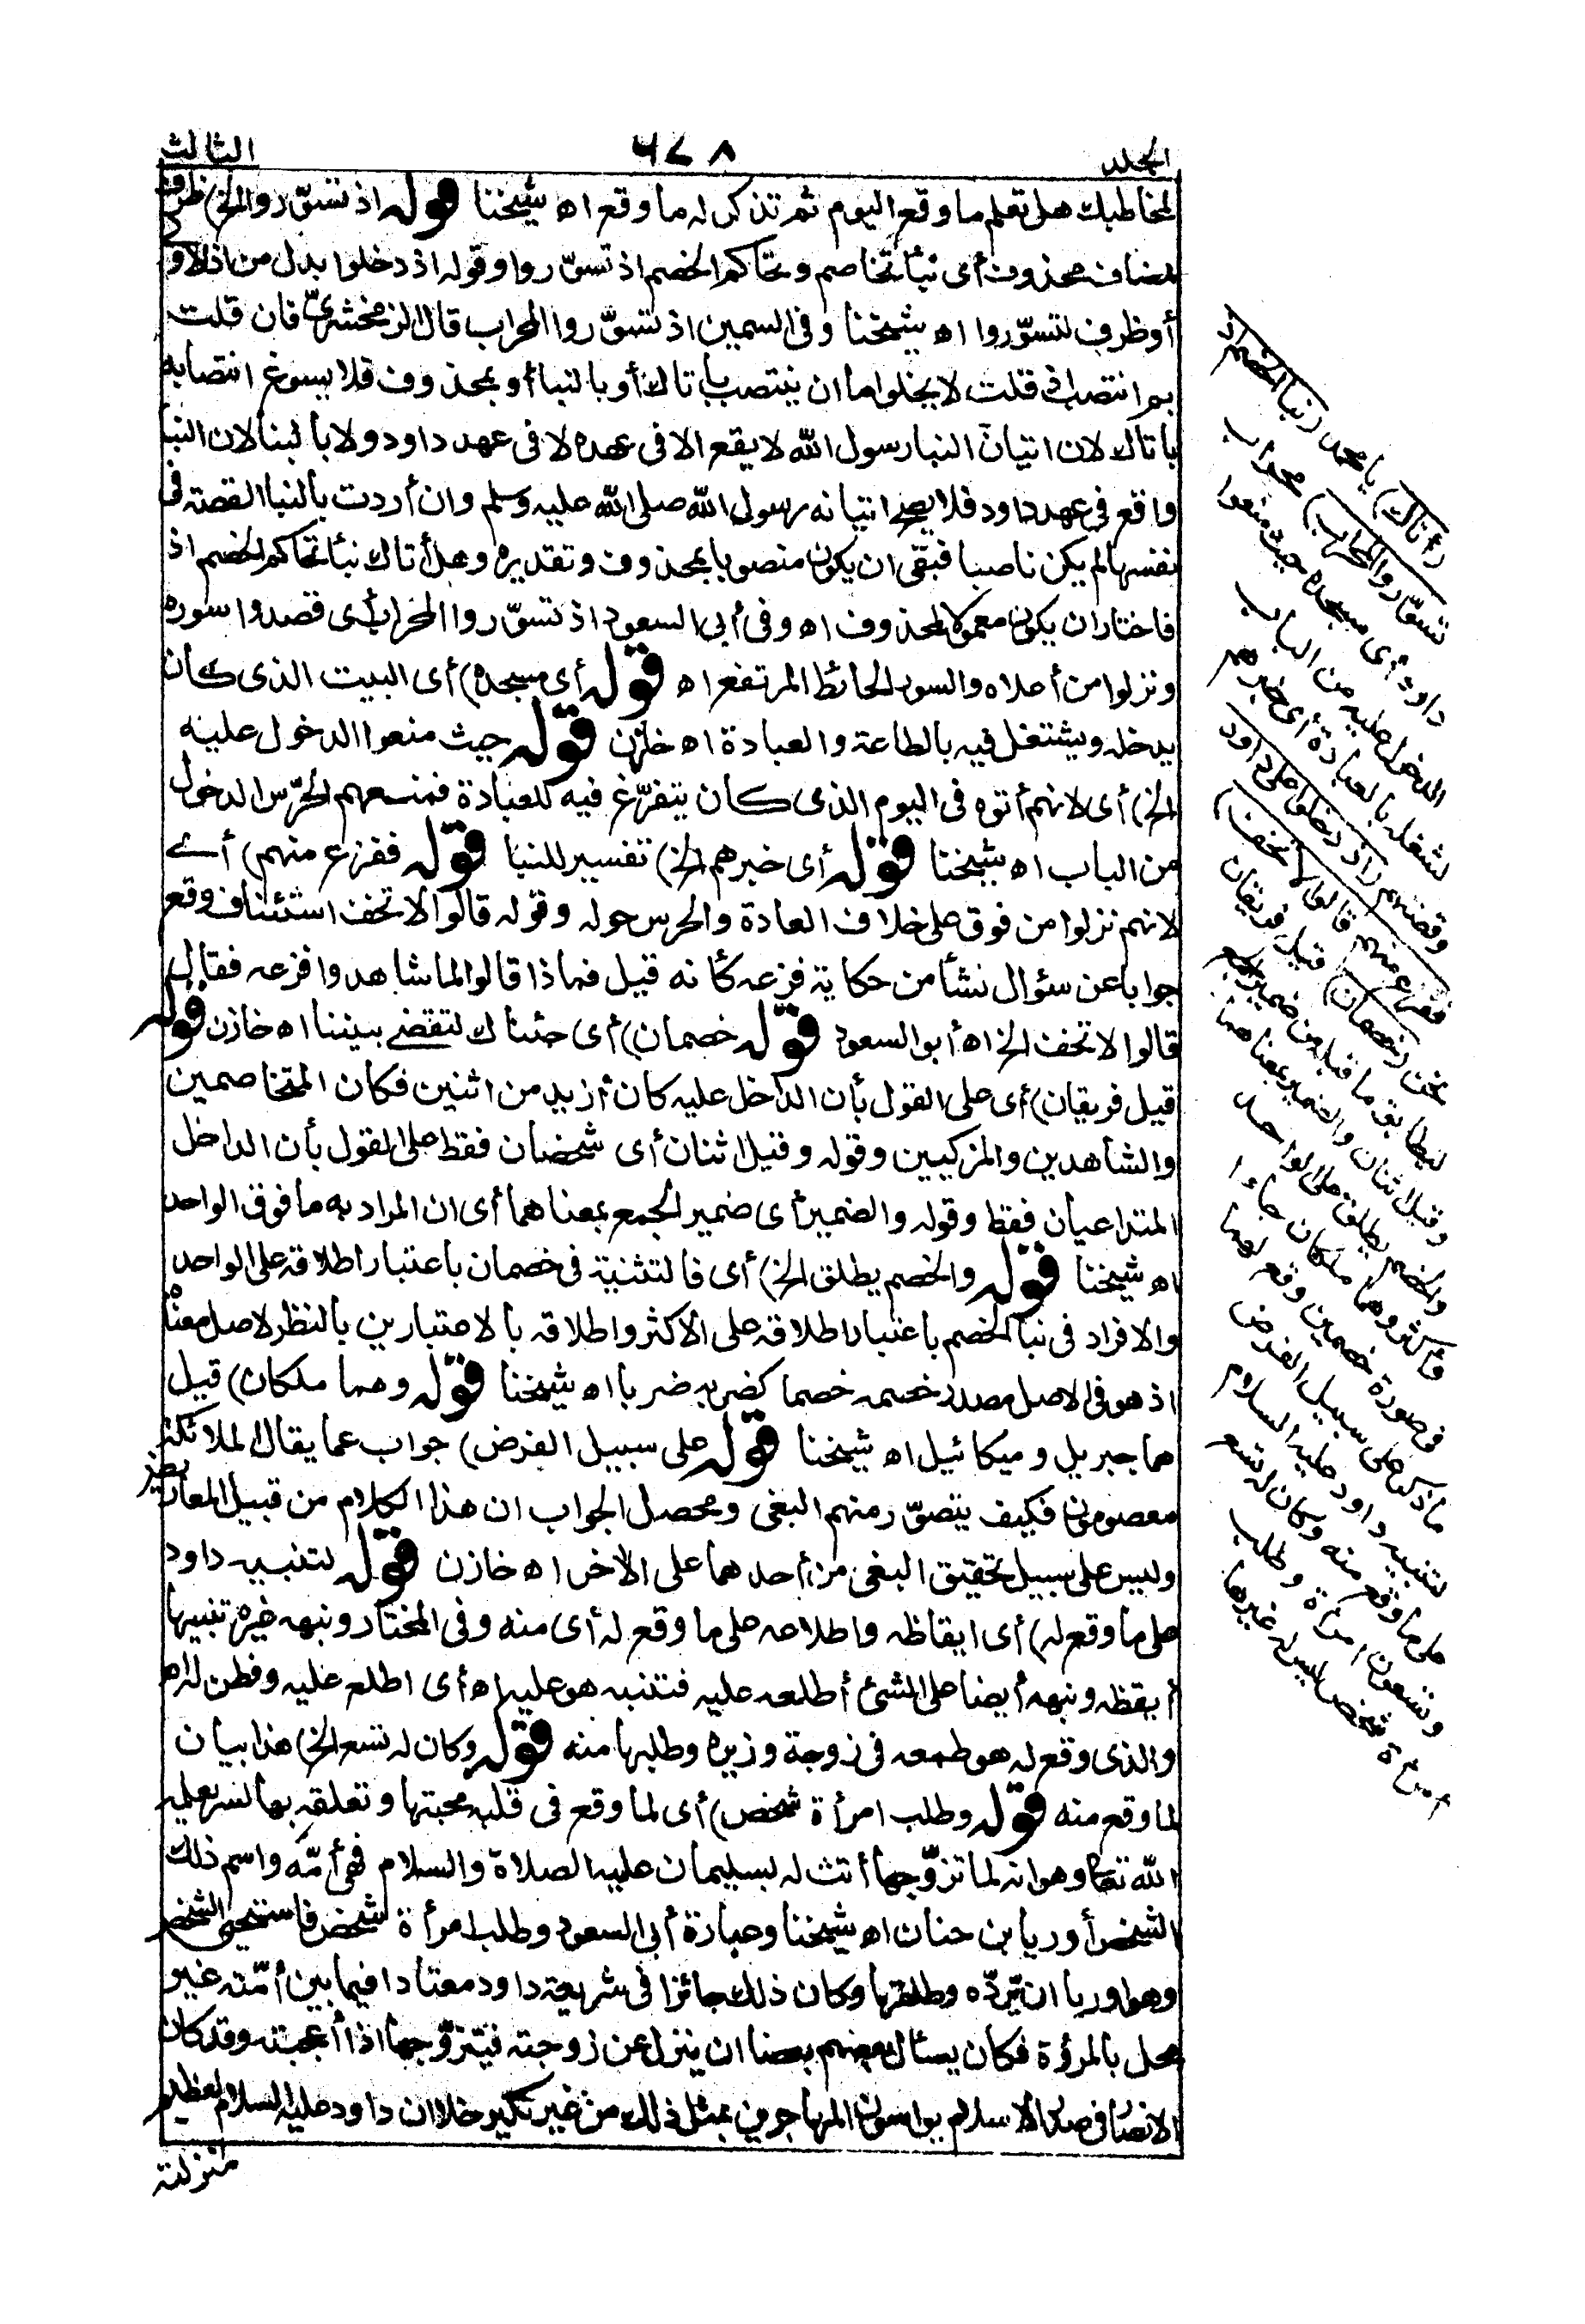 المجلد
٦٧٨
الثالث
لمخاطبك هل تعلم ما وقع اليوم ثم تذكر له ما وقع اه شيخنا قوله اذ تسوّروا الخ) ظرف
لمضاف محذوف أى نبأ تخاصم وتحاكم الخصم اذ تسوّروا وقوله اذ دخلوا بدل من اذ الاولى
أو ظرف لتسوّروا اه شيخنا وفى السمين اذ تسوّروا المحراب قال الزمخشرىّ فان قلت
بم انتصب اذ قلت لا يخلو اما ان ينتصب بأتاك أو بالنبأ أو بمحذوف فلا يسوغ انتصابه
بأتاك لان اتيان النبا رسول الله لا يقع الا فى عهده لا فى عهد داود ولا بالنبأ لان النبأ
واقع فى عهد داود فلا يصح اتيانه رسول الله صلى الله عليه وسلم وان أردت بالنبا القصة فى
نفسها لم يكن ناصبا فبقى ان يكون منصوبا بمحذوف وتقديره وهل أتاك نبأ تحاكم الخصم اذ
فاختار ان يكون معمولا لمحذوف اه وفى أبى السعود اذ تسوّروا المحراب أى قصدوا سوره
ونزلوا من أعلاه والسور الحائط المرتفع اه قوله أى مسجده) أى البيت الذى كان
يدخله ويشتغل فيه بالطاعة والعبادة اه خازن قوله حيث منعوا الدخول عليه
الخ) أى لانهم أتوه فى اليوم الذى كان يتفرّغ فيه للعبادة فمنعهم الحرّس الدخول
من الباب اه شيخنا قوله أى خبرهم الخ) تفسير للنبا قوله ففزع منهم) أى
لانهم نزلوا من فوق على خلاف العادة والحرس حوله وقوله قالوا لا تخف استئناف وقع
جوابا عن سؤال نشأ من حكاية فزعه كأنه قيل فماذا قالوا لما شاهدوا فزعه فقال
قالوا لا تخف الخ اه أبو السعود قوله خصمان) أى جئناك لتقضى بيننا اه خازن قوله
قيل فريقان) أى على القول بأن الداخل عليه كان أزيد من اثنين فكان المتخاصمين
والشاهدين والمزكيين وقوله وقيل اثنان أى شخصان فقط على القول بأن الداخل
المتداعيان فقط وقوله والضمير أى ضمير الجمع بمعناهما أى ان المراد به ما فوق الواحد
اه شيخنا قوله والخصم يطلق الخ) أى فالتثنية فى خصمان باعتبار اطلاقه على الواحد
والافراد فى نبأ الخصم باعتبار اطلاقه على الاكثر واطلاقه بالاعتبارين بالنظر لاصل معناه
اذ هو فى الاصل مصدر خصمه خصما كضربه ضربا اه شيخنا قوله وهما ملكان) قيل
هما جبريل وميكائيل اه شيخنا قوله على سبيل الفرض) جواب عما يقال الملائكة
معصومون فكيف يتصوّر منهم البغى ومحصل الجواب ان هذا الكلام من قبيل المعاريض
وليس على سبيل تحقيق البغى من أحدهما على الآخر اه خازن قوله لتنبيه داود
على ما وقع له) أى ايقاظه واطلاعه على ما وقع له أى منه وفى المختار ونبهه غيره تنبيها
أيقظه ونبهه أيضا على الشئ أطلعه عليه فتنبه هو عليه اه أى اطلع عليه وفطن له اه
والذى وقع له هو طمعه فى زوجة وزيره وطلبها منه قوله وكان له تسع الخ) هذا بيان
لما وقع منه قوله وطلب امرأة شخص) أى لما وقع فى قلبه محبتها وتعلقه بها لسر يعلمه
الله تعالى وهو انه لما تزوّجها أتت له بسليمان عليه الصلاة والسلام فهى أمّه واسم ذلك
الشخص أوريا بن حنان اه شيخنا وعبارة أبى السعود وطلب امرأة شخص فاستحيى الشخص
وهو اوريا ان يردّه وطلقها وكان ذلك جائزا فى شريعة داود معتادا فيما بين أمّته غير
مخل بالمروءة فكان يسأل بعضهم بعضا ان ينزل عن زوجته فيتزوّجها اذا أعجبته وقد كان
الانصار فى صدر الاسلام يواسون المهاجرين بمثل ذلك من غير نكير خلا ان داود عليه السلام لعظيم
منزلته
(أتاك) يا محمد (نبأ الخصم اذ
تسوّروا المحراب) محراب
داود أى مسجده حيث منعوا
الدخول عليه من الباب
لشغله بالعبادة أى خبرهم
وقصتهم (اذ دخلوا على داود
ففزع منهم قالوا لا تخف)
نحن (خصمان) قيل فريقان
ليطابق ما قبله من ضمير الجمع
وقيل اثنان والضمير بمعناهما
والخصم يطلق على الواحد
فأكثر وهما ملكان جاءا
فى صورة خصمين وقع لهما
ما ذكر على سبيل الفرض
لتنبيه داود عليه السلام
على ما وقع منه وكان له تسع
وتسعون امرأة وطلب
امرأة شخص ليس له غيرها